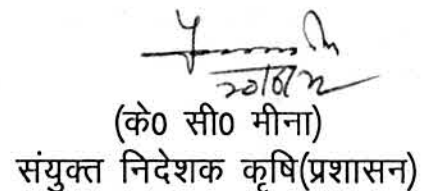 (के0 सी0 मीना)
संयुक्त निदेशक कृषि(प्रशासन)